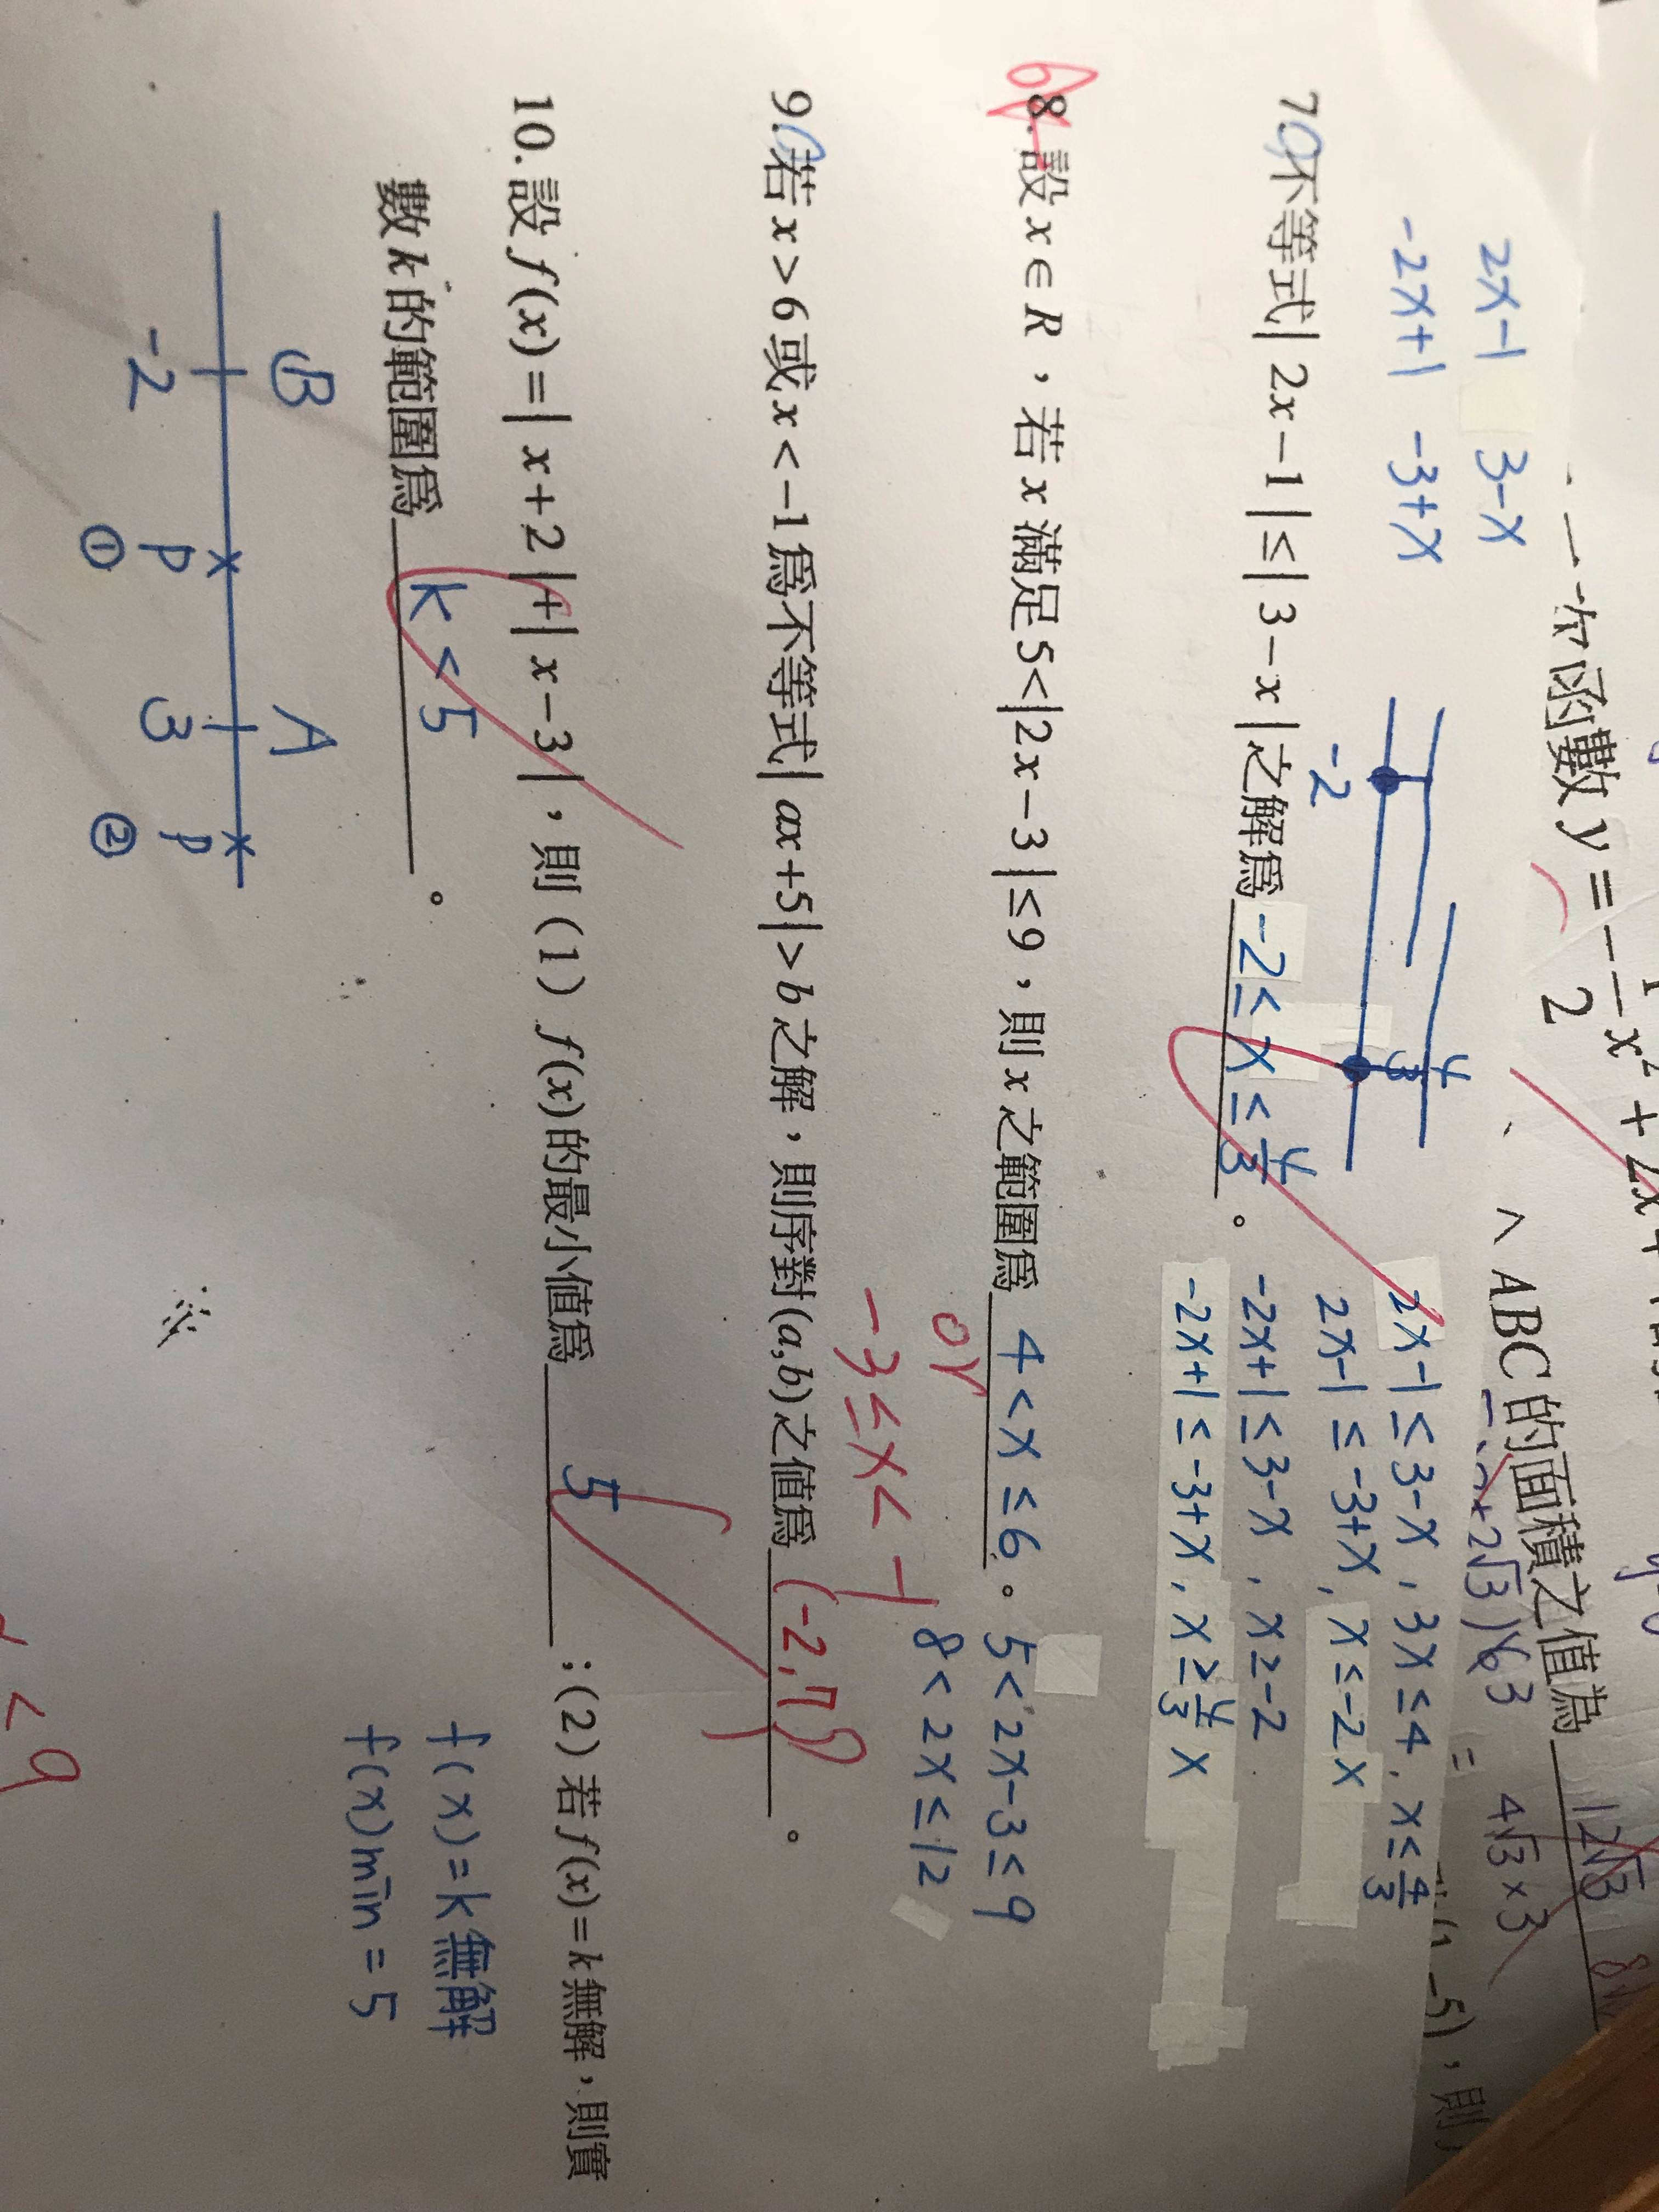 一次函數 y = - 1/2 x² + 2x +
ABC的面積之值為 12√3
= 4√3 × 3
-5)，則
2x-1 3-x
-2x+1 -3+x
-2 4/3
7.不等式| 2x-1|≤| 3-x|之解為 -2≤x≤4/3 。
2x-1≤3-x , 3x≤4 , x≤4/3
2x-1≤-3+x , x≤-2 x
-2x+1≤3-x , x≥-2
-2x+1≤-3+x , x≥4/3 x
8.設x∈R，若x滿足5<|2x-3|≤9，則x之範圍為 4<x≤6 。
5<2x-3≤9
8<2x≤12
or
-3≤x<-1
9.若x>6或x<-1為不等式| ax+5|>b之解，則序對(a,b)之值為 (-2,7) 。
10.設f(x)=| x+2 |+| x-3|，則（1）f(x)的最小值為 5 ；(2)若f(x)=k無解，則實
數k的範圍為 k<5 。
f(x)=k無解
f(x)min=5
B A
-2 P 3 P
① ②
< 9